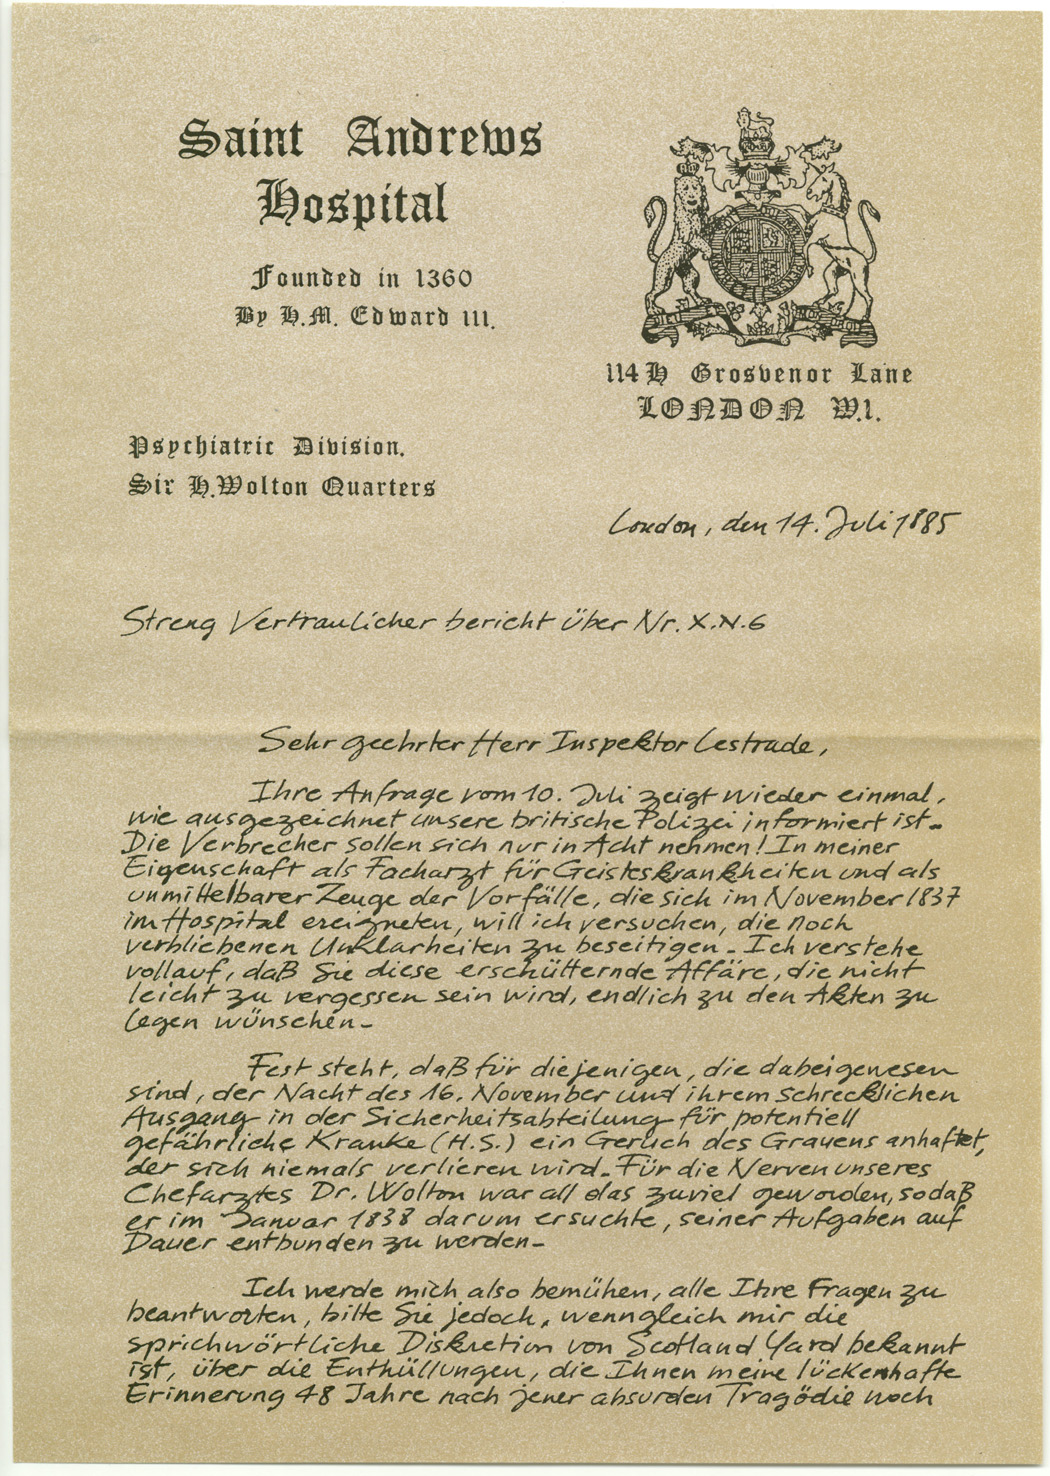 Saint Andrews
Hospital
Founded in 1360
By H.M. Edward III.
114 H Grosvenor Lane
LONDON W.1.
Psychiatric Division.
Sir H. Wolton Quarters
London, den 14. Juli 1885
Streng Vertraulicher bericht über Nr. X.N.6
Sehr geehrter Herr Inspektor Lestrade,
Ihre Anfrage vom 10. Juli zeigt wieder einmal,
wie ausgezeichnet unsere britische Polizei informiert ist.
Die Verbrecher sollen sich nur in Acht nehmen! In meiner
Eigenschaft als Facharzt für Geisteskrankheiten und als
unmittelbarer Zeuge der Vorfälle, die sich im November 1837
im Hospital ereigneten, will ich versuchen, die noch
verbliebenen Unklarheiten zu beseitigen. Ich verstehe
vollauf, daß Sie diese erschütternde Affäre, die nicht
leicht zu vergessen sein wird, endlich zu den Akten zu
legen wünschen.
Fest steht, daß für diejenigen, die dabeigewesen
sind, der Nacht des 16. November und ihrem schrecklichen
Ausgang in der Sicherheitsabteilung für potentiell
gefährliche Kranke (H.S.) ein Geruch des Grauens anhaftet,
der sich niemals verlieren wird. Für die Nerven unseres
Chefarztes Dr. Wolton war all das zuviel geworden, sodaß
er im Januar 1838 darum ersuchte, seiner Aufgaben auf
Dauer entbunden zu werden.
Ich werde mich also bemühen, alle Ihre Fragen zu
beantworten, bitte Sie jedoch, wenngleich mir die
sprichwörtliche Diskretion von Scotland Yard bekannt
ist, über die Enthüllungen, die Ihnen meine lückenhafte
Erinnerung 48 Jahre nach jener absurden Tragödie noch